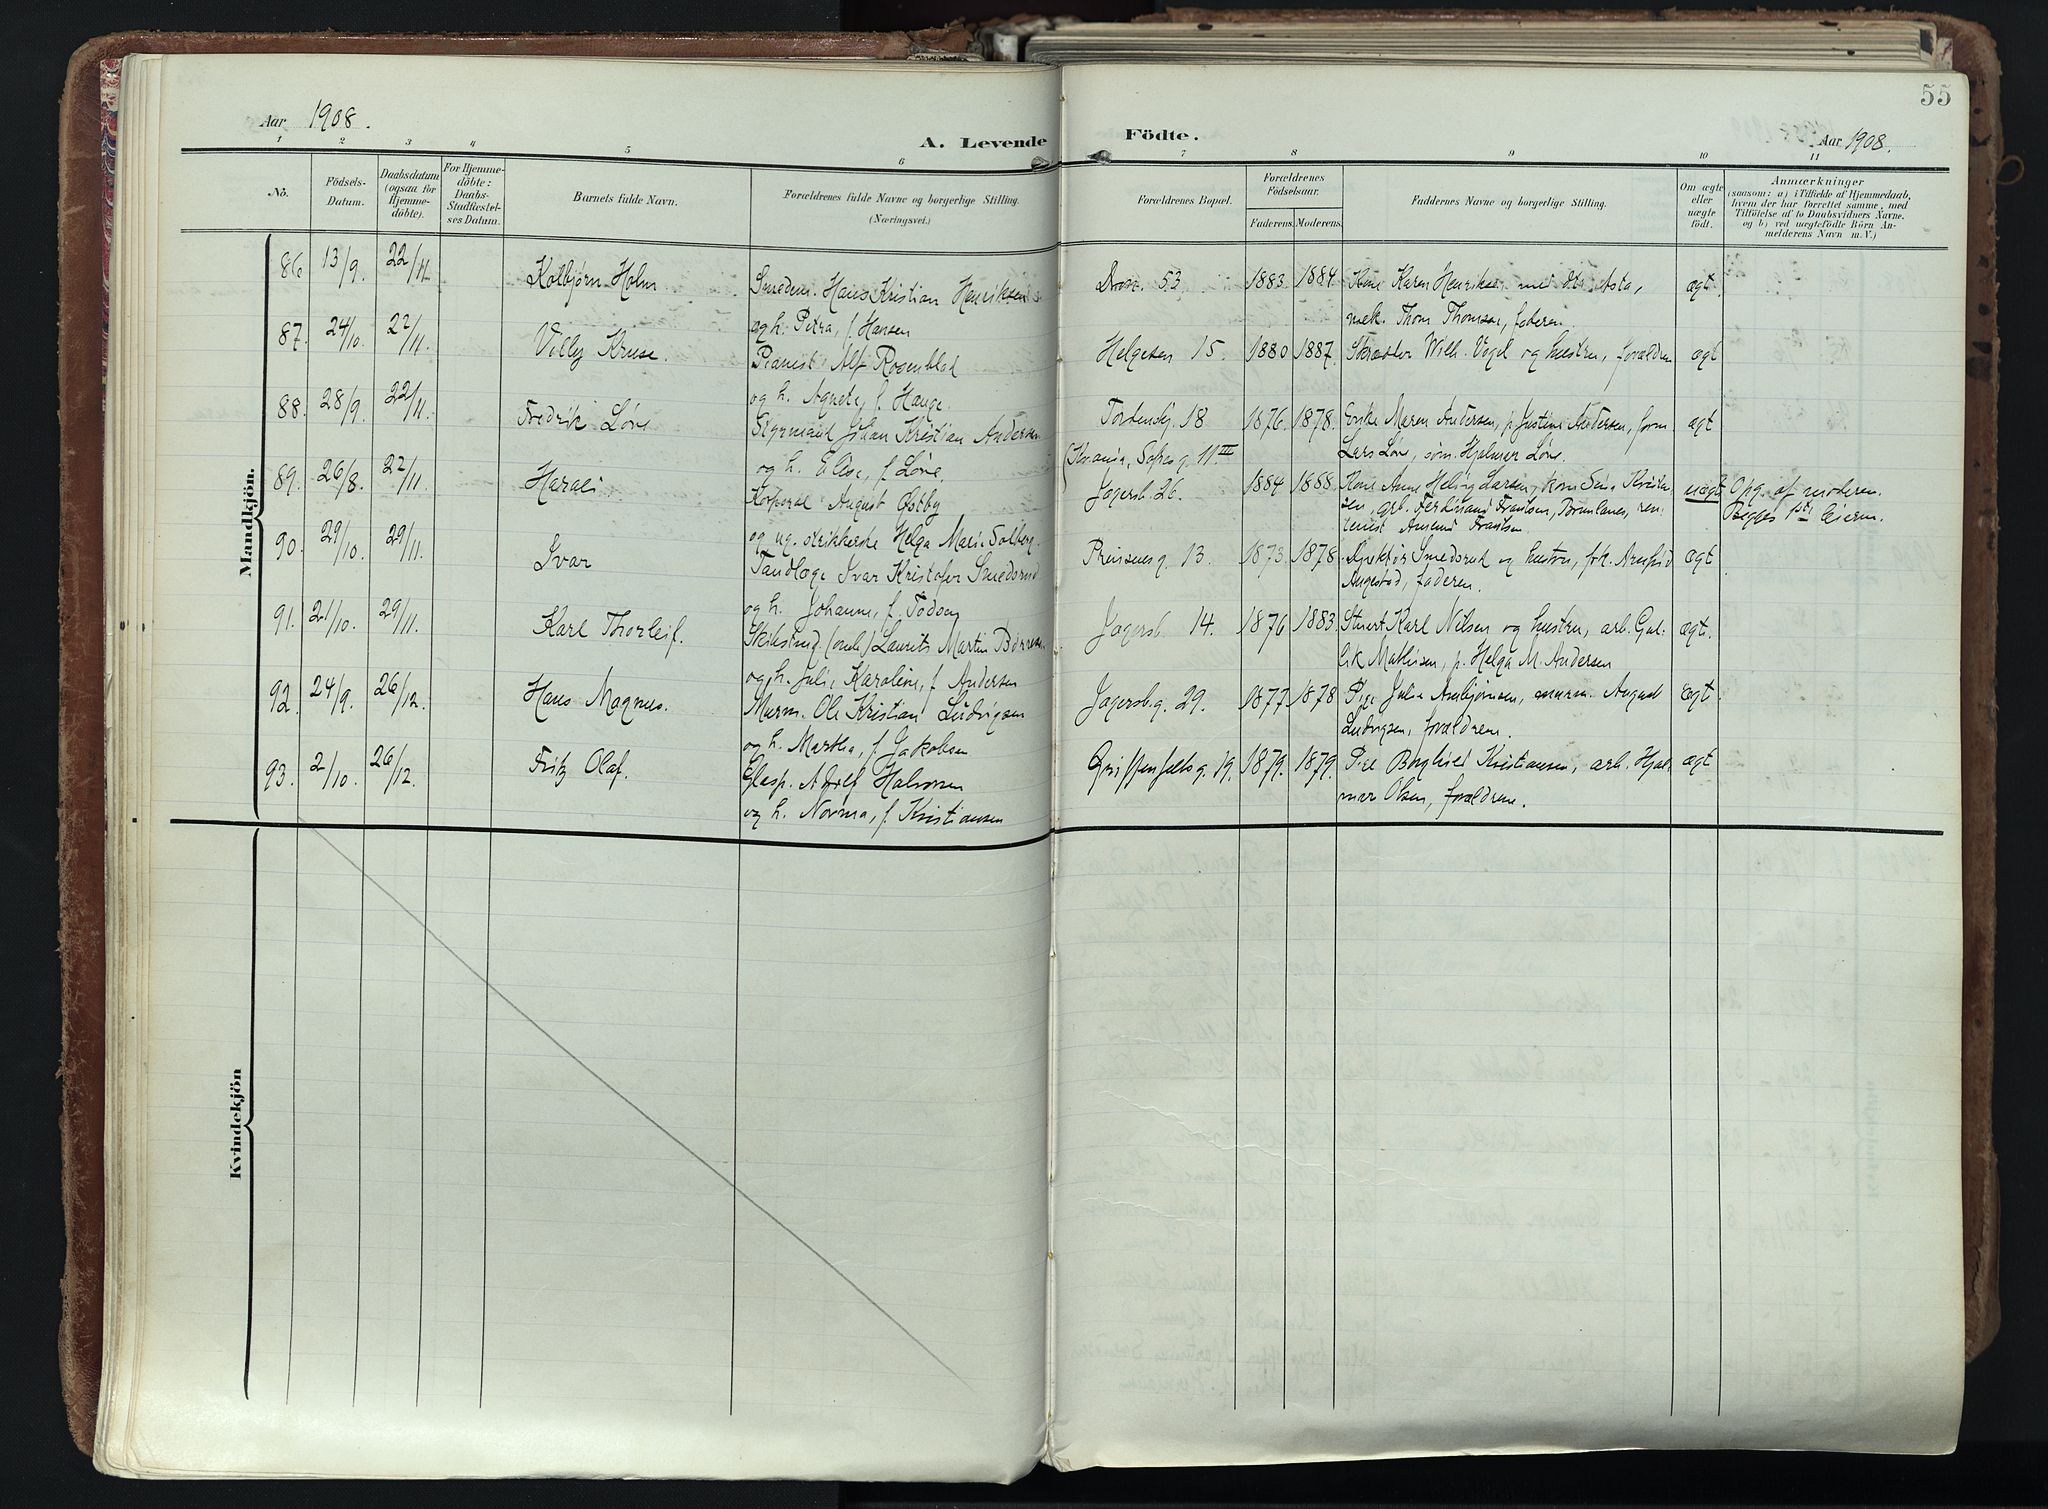 55
Aar 1908.
A. Levende Födte.
Aar 1908.
1 2 3 4 5 6 7 8 9 10 11
No.
Födsels-
Datum.
Daabsdatum
(ogsaa for
Hjemme-
döbte).
For Hjemme-
döbte:
Daabs-
Stadfæstel-
ses Datum.
Barnets fulde Navn.
Forældrenes fulde Navne og borgerlige Stilling.
(Næringsvei.)
Forældrenes Bopæl.
Forældrenes
Födselsaar.
Faderens. Moderens.
Faddernes Navne og borgerlige Stilling.
Om ægte
eller
uægte
födt.
Anmærkninger
(saasom: a) i Tilfælde af Hjemmedaab,
hvem der har forrettet samme, med
Tilföielse af to Daabsvidners Navne.
og b) ved uægtefödte Börn An-
melderens Navn m. V.)
Mandkjön.
86. 13/9. 22/11. Kolbjørn Holm Smedem. Hans Kristian Henriksen 53 1883 1884 Karen Henriksen med Asta, ægt.
og h. Petra, f. Hansen mek. Thom Thomsen, faderen
87. 24/10. 22/11. Villy Kruse. Pianist Alf Rosenblad Helgesen 15. 1880 1887. Wilh. Vogel og hustru, forældrene ægt
og h. Agnete, f. Hauge.
88. 28/9. 22/11. Fredrik Løve Styrmand Johan Kristian Andersen Tordenskj. 18 1876 1878. Enke Maren Andersen, p. Justine Andersen, ægt
og h. Elise, f. Løve. Lars Løve, Hjalmar Løve.
89. 26/8. 22/11. Harald Korporal August Østby (Kristiania, Sofies g. 11 III
Jagersb. 26. 1884 1888 Larsen, uægt Opg. af moderen.
og ug. strikkerske Helga Marie Solberg. Ferdinand Frantsen, Brunlanes, Begges 1ste leierm.
Amund Frantsen
90. 29/10. 29/11. Ivar Tandlæge Ivar Kristofer Smedsrud Prinsens g. 13. 1873 1878 Smedsrud og hustru, frk. ægt
og h. Johanne, f. faderen.
91. 21/10. 29/11. Karl Thorleif. Laurits Martin Jagersb. 14. 1876 1883. Karl Nilsen og hustru, arb. ægt.
og h. Julie Karoline, f. Andersen Mathisen, p. Helga M. Andersen
92. 24/9. 26/12. Hans Magnus. Murm. Ole Kristian Ludvigsen Jagersb. g. 29. 1877 1878 Pige Julie murm. August ægt.
og h. Martha, f. Jakobsen Ludvigsen, forældrene.
93. 2/10. 26/12. Fritz Olaf. Adolf Halvorsen Griffenfelds g. 19. 1879. 1879. Pige Borghild Kristiansen, arb. Hjal- ægt
og h. Norma, f. Kristiansen mar Olsen, forældrene.
Kvindekjön